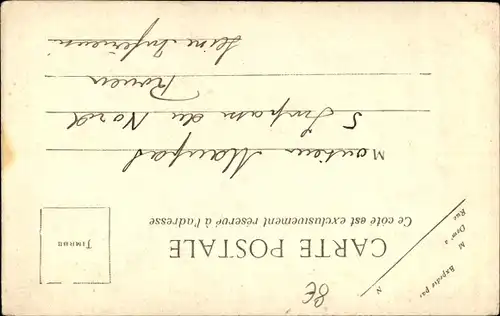 8€
Expédié par
N
M
Dem^t à
Rue
CARTE POSTALE
Ce côté est exclusivement réservé à l'adresse
TIMBRE
Monsieur Maupas
5 Impasse du Nord
Rouen
Seine Inférieure